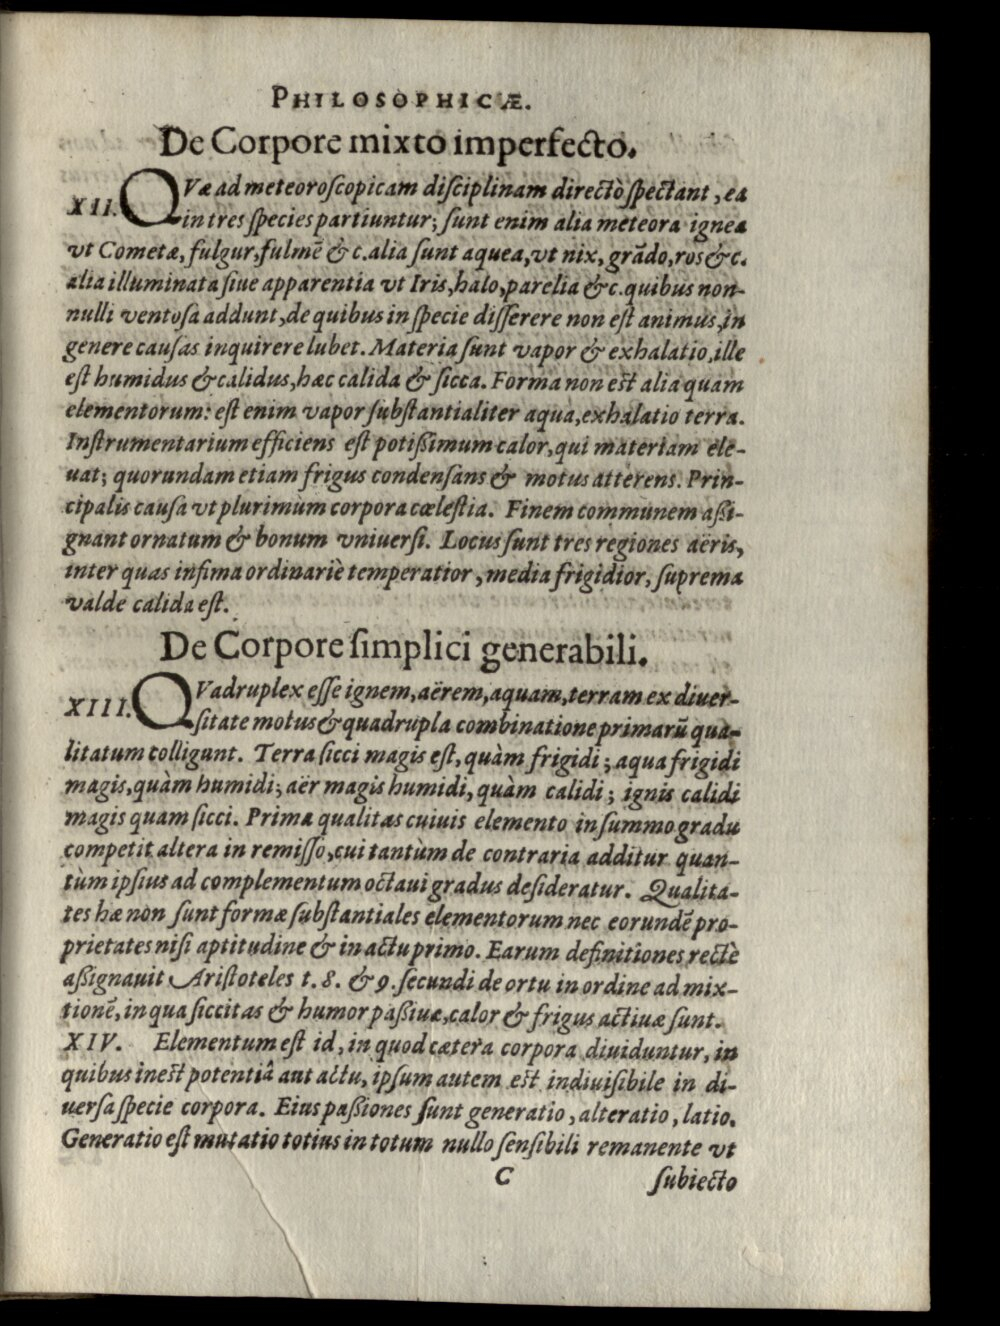 PHILOSOPHICÆ.
De Corpore mixto imperfecto.
XII. QVæ ad meteoroſcopicam diſciplinam directò ſpectant, ea
in tres ſpecies partiuntur; ſunt enim alia meteora ignea
vt Cometæ, fulgur, fulmē & c. alia ſunt aquea, vt nix, grādo, ros & c.
alia illuminata ſiue apparentia vt Iris, halo, parelia & c. quibus non-
nulli ventoſa addunt, de quibus in ſpecie diſſerere non eſt animus, in
genere cauſas inquirere lubet. Materia ſunt vapor & exhalatio, ille
eſt humidus & calidus, hæc calida & ſicca. Forma non eſt alia quam
elementorum: eſt enim vapor ſubſtantialiter aqua, exhalatio terra.
Inſtrumentarium efficiens eſt potißimum calor, qui materiam ele-
uat; quorundam etiam frigus condenſans & motus atterens. Prin-
cipalis cauſa vt plurimum corpora cœleſtia. Finem communem aßi-
gnant ornatum & bonum vniuerſi. Locus ſunt tres regiones aëris,
inter quas infima ordinariè temperatior, media frigidior, ſuprema
valde calida eſt.
De Corpore ſimplici generabili.
XIII. QVadruplex eſſe ignem, aërem, aquam, terram ex diuer-
ſitate motus & quadrupla combinatione primarū qua-
litatum colligunt. Terra ſicci magis eſt, quàm frigidi; aqua frigidi
magis, quàm humidi; aër magis humidi, quàm calidi; ignis calidi
magis quam ſicci. Prima qualitas cuiuis elemento in ſummo gradu
competit altera in remiſſo, cui tantùm de contraria additur quan-
tùm ipſius ad complementum octaui gradus deſideratur. Qualita-
tes hæ non ſunt formæ ſubſtantiales elementorum nec eorundē pro-
prietates niſi aptitudine & in actu primo. Earum definitiones rectè
aßignauit Ariſtoteles t. 8. & 9. ſecundi de ortu in ordine ad mix-
tionē, in qua ſiccitas & humor paßiuæ, calor & frigus actiuæ ſunt.
XIV. Elementum eſt id, in quod cætera corpora diuiduntur, in
quibus ineſt potentiâ aut actu, ipſum autem eſt indiuiſibile in di-
uerſa ſpecie corpora. Eius paßiones ſunt generatio, alteratio, latio.
Generatio eſt mutatio totius in totum nullo ſenſibili remanente vt
C ſubiecto